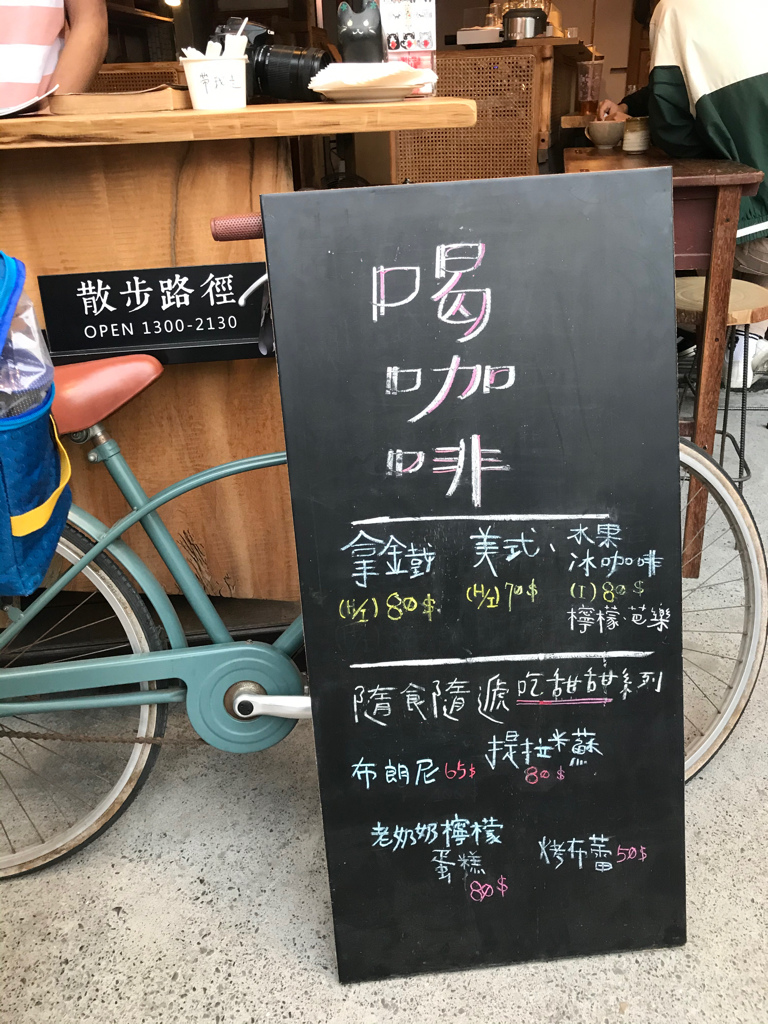 帶我走
散步路徑
OPEN 1300-2130
喝
咖
啡
拿金鐵
(H/I) 80$
美式、
(H/I) 70$
水果
冰咖啡
(I) 80$
檸檬·芭樂
隨食隨遞 吃甜甜系列
布朗尼 65$
提拉米蘇
80$
老奶奶檸檬
蛋糕
80$
烤布蕾 50$